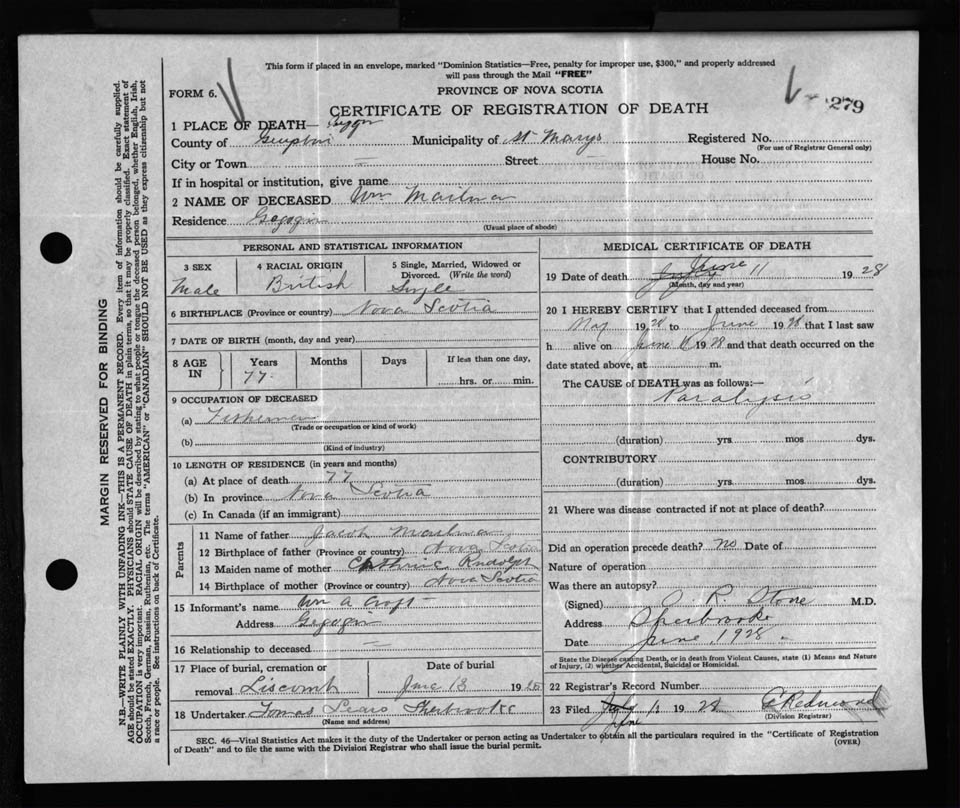 This form if placed in an envelope, marked "Dominion Statistics—Free, penalty for improper use, $300," and properly addressed
will pass through the Mail "FREE"
FORM 6.
PROVINCE OF NOVA SCOTIA
279
CERTIFICATE OF REGISTRATION OF DEATH
1 PLACE OF DEATH—
County of Municipality of St Marys Registered No.
(For use of Registrar General only)
City or Town — Street — House No.
If in hospital or institution, give name
2 NAME OF DECEASED Wm Mailman
Residence Gegogin
(Usual place of abode)
PERSONAL AND STATISTICAL INFORMATION
3 SEX 4 RACIAL ORIGIN 5 Single, Married, Widowed or Divorced. (Write the word)
Male British Single
6 BIRTHPLACE (Province or country) Nova Scotia
7 DATE OF BIRTH (month, day and year)
8 AGE IN Years Months Days If less than one day,
77 hrs. or min.
9 OCCUPATION OF DECEASED
(a) Fishermen
(Trade or occupation or kind of work)
(b)
(Kind of industry)
10 LENGTH OF RESIDENCE (in years and months)
(a) At place of death 77
(b) In province Nova Scotia
(c) In Canada (if an immigrant)
Parents
11 Name of father Jacob Mailman
12 Birthplace of father (Province or country) Nova Scotia
13 Maiden name of mother Cathrine Rudolph
14 Birthplace of mother (Province or country) Nova Scotia
15 Informant's name Wm A Croft
Address Gegogin
16 Relationship to deceased —
17 Place of burial, cremation or Date of burial
removal Liscomb June 13 19
18 Undertaker Tomas Sears Sherbrooke
(Name and address)
MEDICAL CERTIFICATE OF DEATH
19 Date of death June 11 1928
(Month, day and year)
20 I HEREBY CERTIFY that I attended deceased from
May 1928 to June 1928 that I last saw
h alive on June 1928 and that death occurred on the
date stated above, at m.
The CAUSE of DEATH was as follows:—
Paralysis
(duration) yrs. mos dys.
CONTRIBUTORY
(duration) yrs. mos dys.
21 Where was disease contracted if not at place of death?
Did an operation precede death? No Date of
Nature of operation
Was there an autopsy?
(Signed) R Stone M.D.
Address Sherbrooke
Date June, 1928
State the Disease causing Death, or in death from Violent Causes, state (1) Means and Nature
of Injury, (2) whether Accidental, Suicidal or Homicidal.
22 Registrar's Record Number
23 Filed June 11 1928 C Redmond
(Division Registrar)
SEC. 46—Vital Statistics Act makes it the duty of the Undertaker or person acting as Undertaker to obtain all the particulars required in the "Certificate of Registration
of Death" and to file the same with the Division Registrar who shall issue the burial permit. (OVER)
MARGIN RESERVED FOR BINDING
N.B.—WRITE PLAINLY WITH UNFADING INK—THIS IS A PERMANENT RECORD. Every item of information should be carefully supplied.
AGE should be stated EXACTLY. PHYSICIANS should STATE CAUSE OF DEATH in plain terms, so that it may be properly classified. Exact statement of
OCCUPATION is very important. RACIAL ORIGIN will be described by stating to what people or tongue the deceased person belonged, whether English, Irish,
Scotch, French, German, Russian, Ruthenian, etc. The terms "AMERICAN" or "CANADIAN" SHOULD NOT BE USED as they express citizenship but not
a race or people. See instructions on back of Certificate.